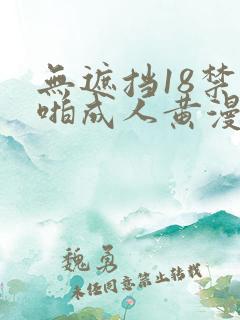 無遮挡18禁
啪成人黄漫
魏勇
未经同意禁止转载